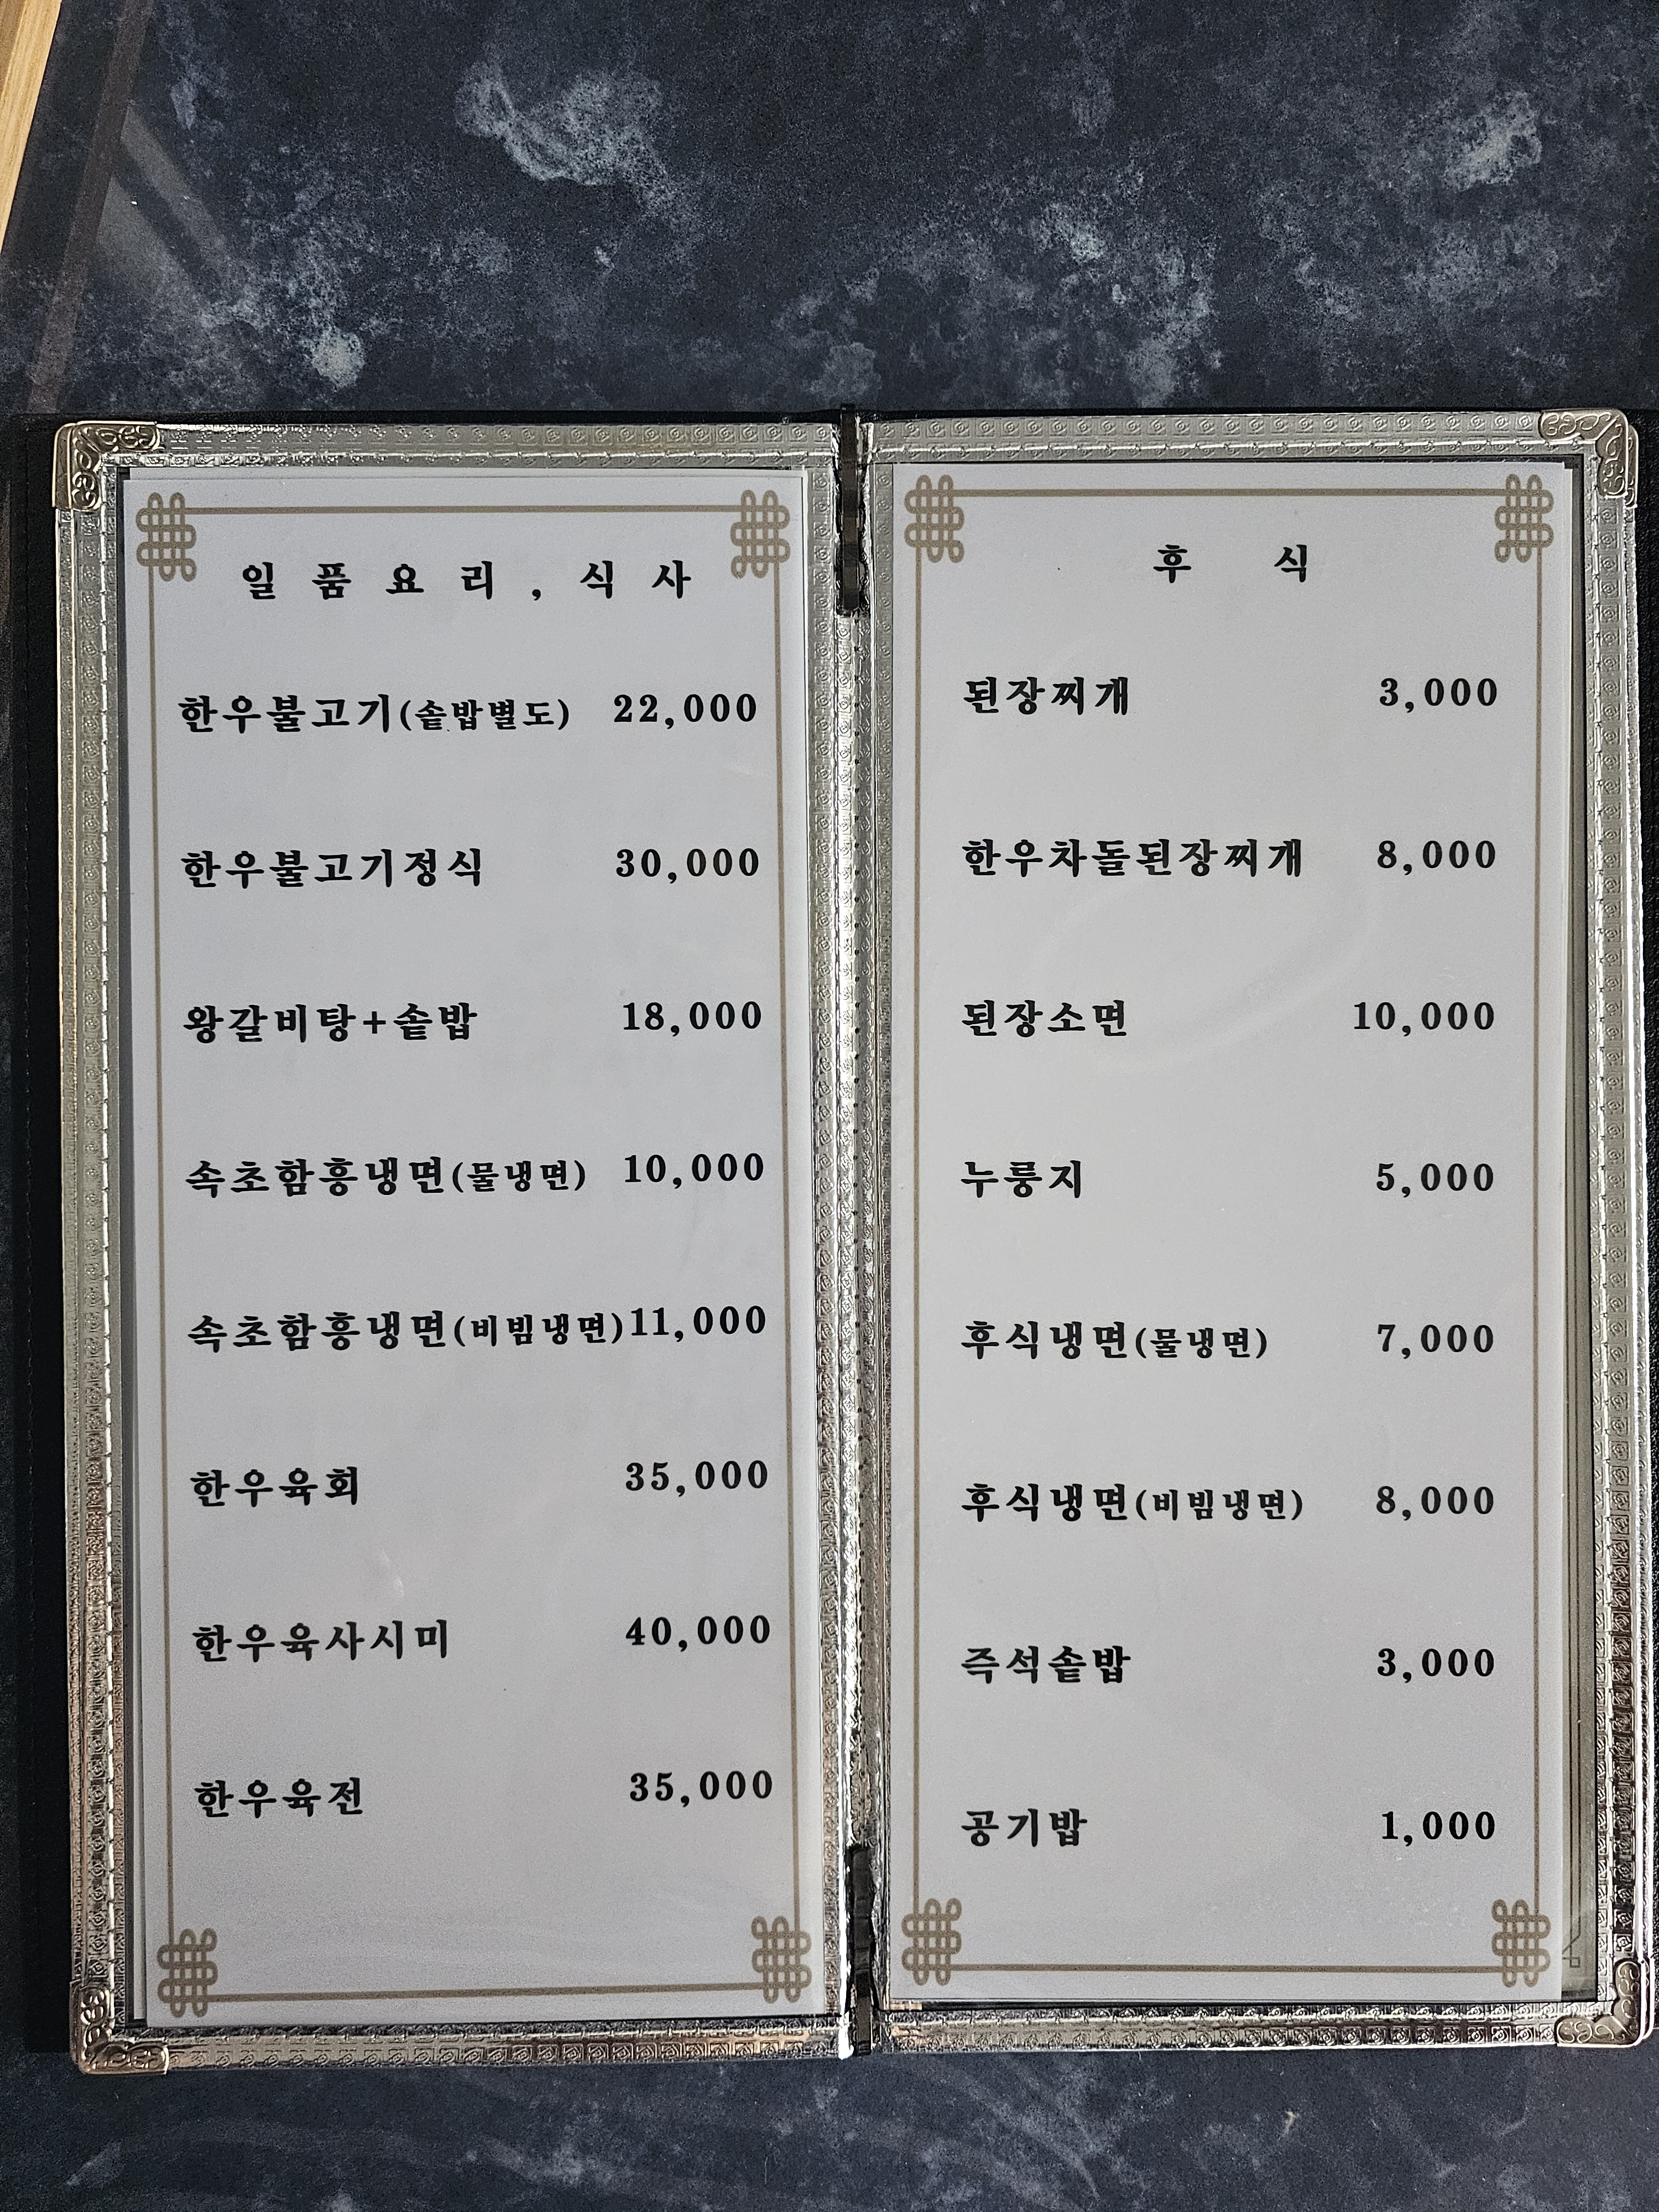 일 품 요 리 , 식 사
한우불고기(솥밥별도) 22,000
한우불고기정식 30,000
왕갈비탕+솥밥 18,000
속초함흥냉면(물냉면) 10,000
속초함흥냉면(비빔냉면) 11,000
한우육회 35,000
한우육사시미 40,000
한우육전 35,000
후 식
된장찌개 3,000
한우차돌된장찌개 8,000
된장소면 10,000
누룽지 5,000
후식냉면(물냉면) 7,000
후식냉면(비빔냉면) 8,000
즉석솥밥 3,000
공기밥 1,000